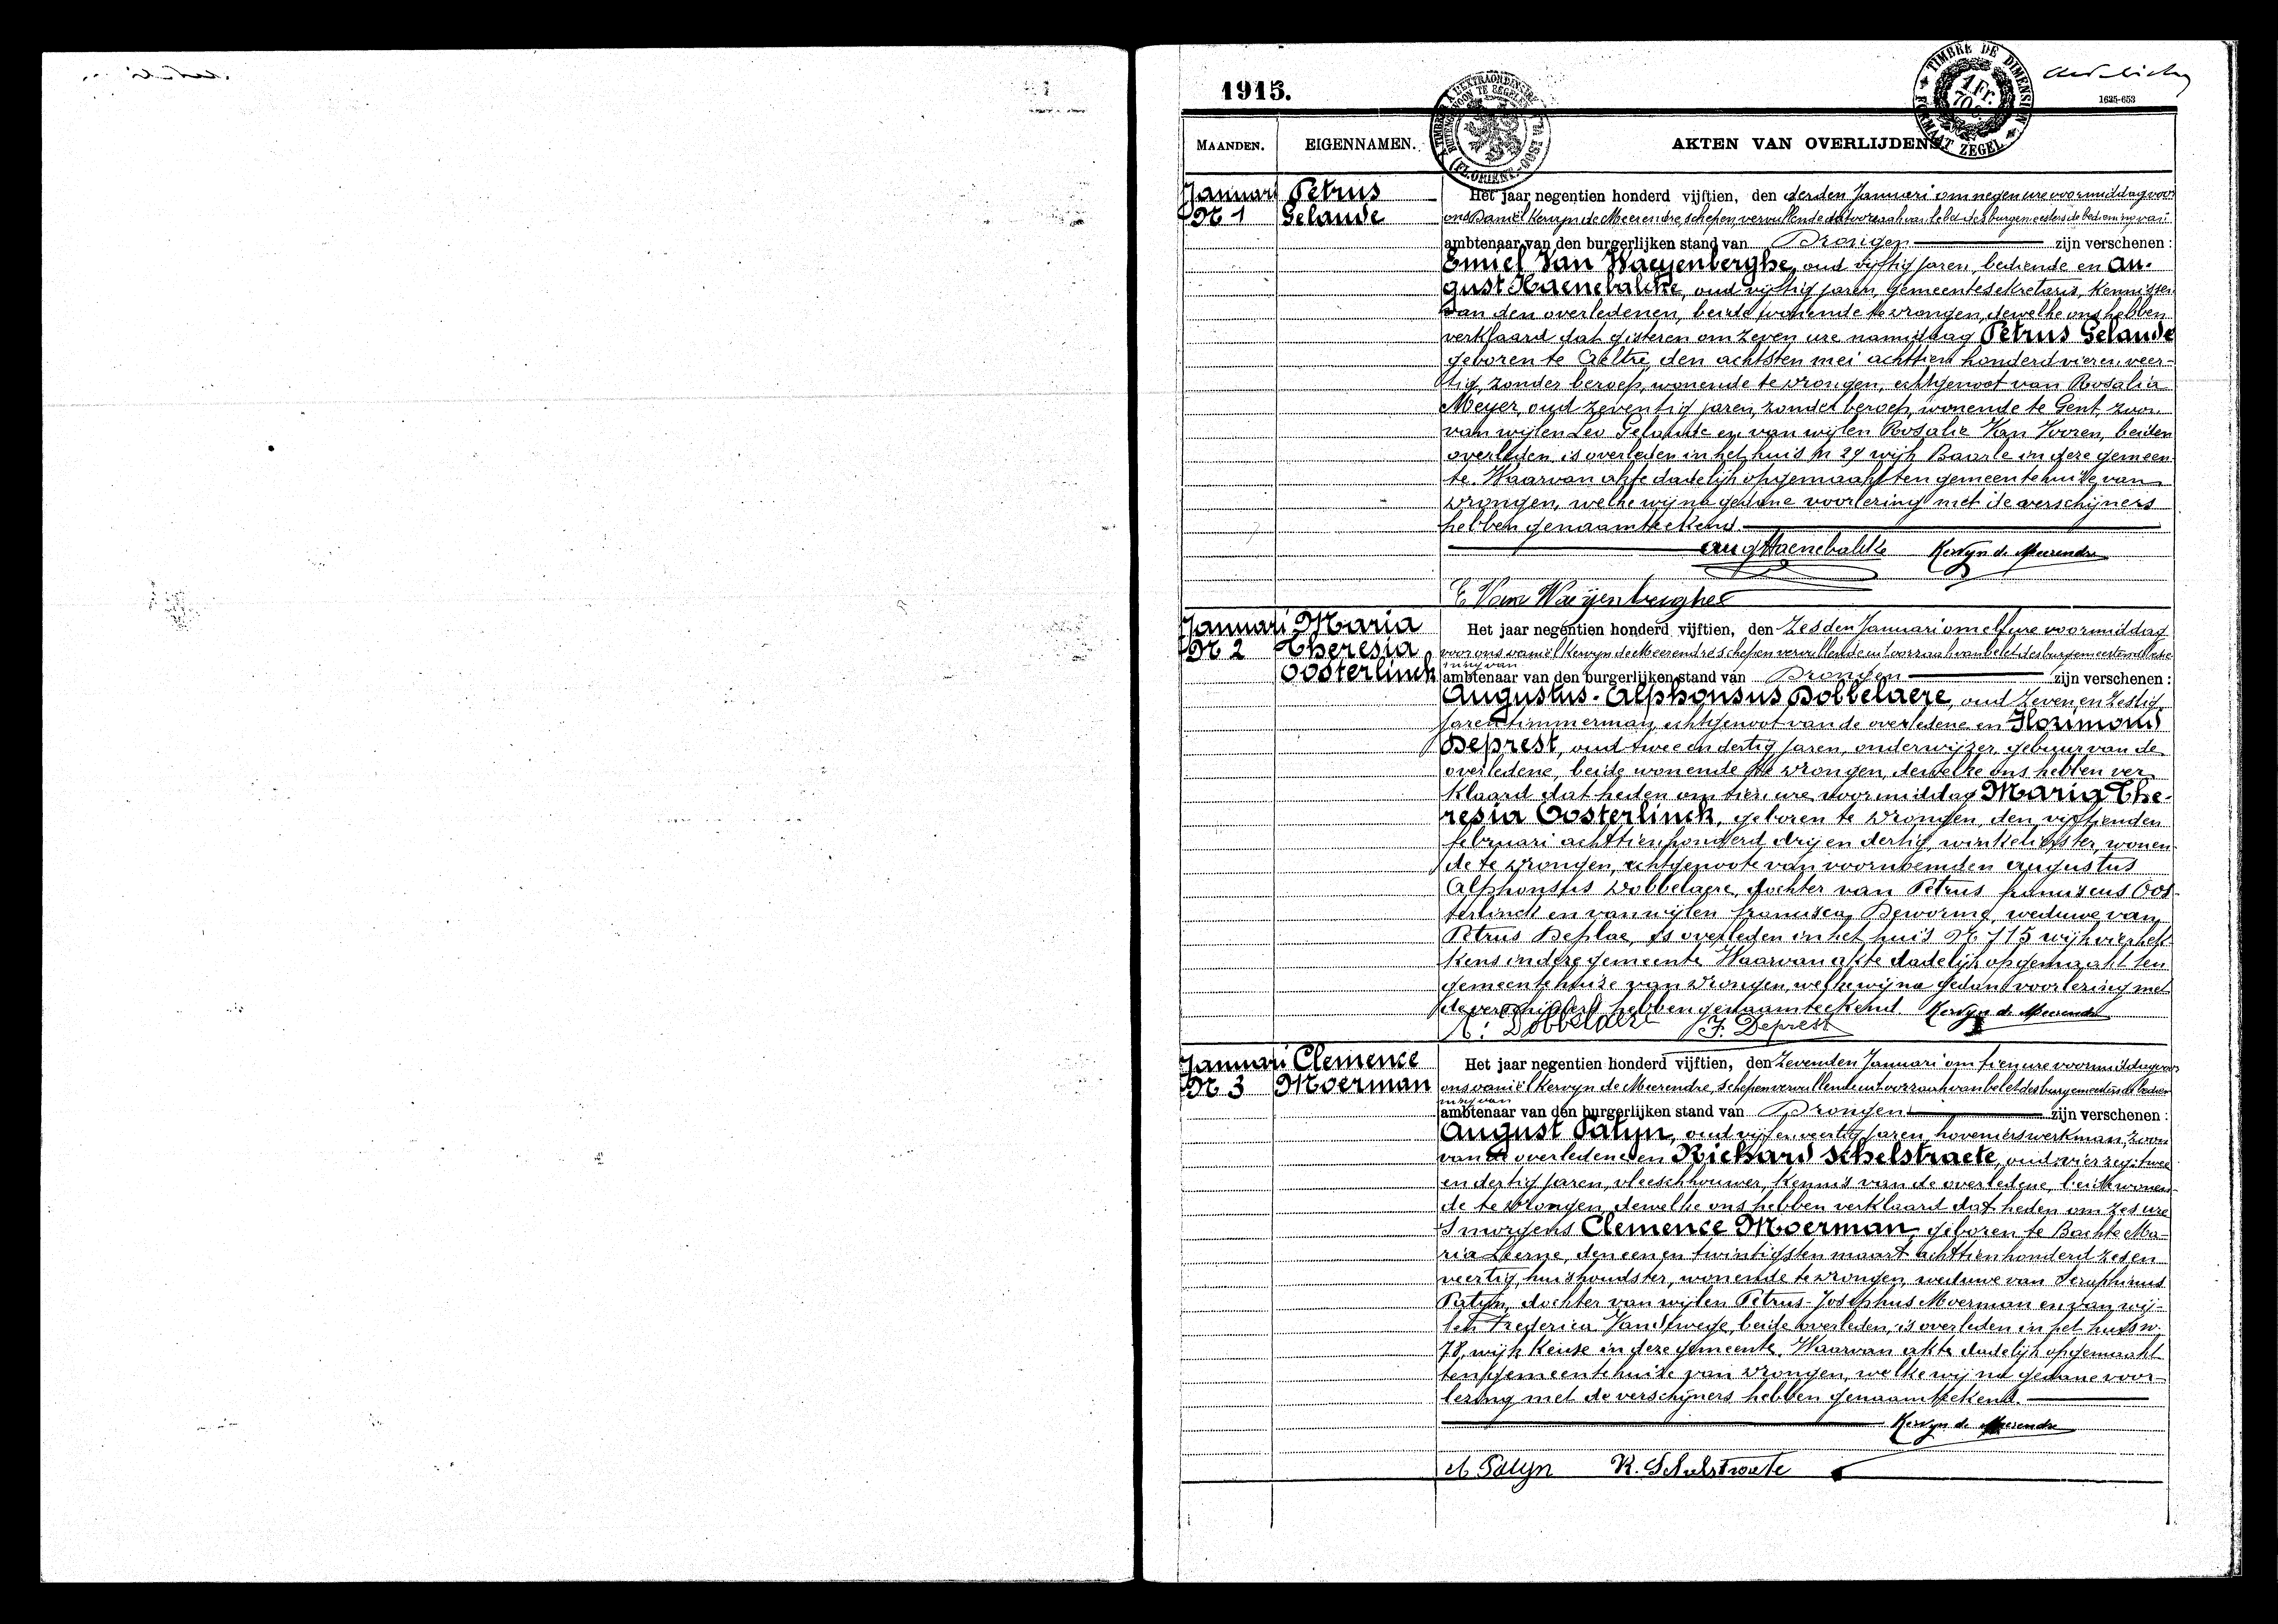 1915.
TIMBRE DE DIMENSION
1 Fr. 70
FORMAAT ZEGEL
1635-653
MAANDEN.
EIGENNAMEN.
AKTEN VAN OVERLIJDEN
Januari
Nr 1
Petrus
Gelaude
Het jaar negentien honderd vijftien, den derden Januari om negen ure voormiddag voor
ons Daniël Kervyn de Meerendre, schepen, vervullende uit oorzaak van belet des burgemeesters de bediening van
ambtenaar van den burgerlijken stand van Drongen zijn verschenen :
Emiel Van Waeyenberghe, oud vijftig jaren, bediende en Au-
gust Haenebalcke, oud vijftig jaren, Gemeentesekretaris, kennissen
van den overledenen, beide wonende te Drongen, dewelke ons hebben
verklaard dat gisteren om zeven ure namiddag Petrus Gelaude
geboren te Aeltre, den achtsten mei achttien honderd vier en veer-
tig, zonder beroep, wonende te Drongen, echtgenoot van Rosalia
Meyer, oud zeventig jaren, zonder beroep, wonende te Gent, zoon
van wijlen Leo Gelaude en van wijlen Rosalie Van Vooren, beiden
overleden, is overleden in het huis Nr 29 wijk Baarle in deze gemeen-
te. Waarvan akte dadelijk opgemaakt ten gemeentehuize van
Drongen, welke wij na gedane voorlezing met de verschijners
hebben genaamteekend.
Aug Haenebalcke Kervyn de Meerendre
E Van Waeyenberghe
Januari
Nr 2
Maria
Theresia
Oosterlinck
Het jaar negentien honderd vijftien, den Zesden Januari om elf ure voormiddag
voor ons Daniël Kervyn de Meerendre schepen vervullende uit oorzaak van belet des burgemeesters de bedie-
ning van
ambtenaar van den burgerlijken stand van Drongen zijn verschenen :
Augustus-Alphonsus Dobbelaere, oud zeven en zestig
jaren timmerman, echtgenoot van de overledene en Florimond
Deprest, oud twee en dertig jaren, onderwijzer, gebuur van de
overledene, beide wonende te Drongen, dewelke ons hebben ver
klaard dat heden om tien ure voormiddag Maria The-
resia Oosterlinck, geboren te Drongen, den vijftienden
februari achttien honderd drij en dertig, winkelierster, wonen
de te Drongen, echtgenoote van voornoemden Augustus
Alphonsus Dobbelaere, dochter van Petrus franciscus Oos-
terlinck en van wijlen francisca Deworme, weduwe van
Petrus Deplae, is overleden in het huis Nr 715 wijk vierhek-
kens in deze gemeente. Waarvan akte dadelijk opgemaakt ten
gemeentehuize van Drongen, welke wij na gedane voorlezing met
de verschijners hebben genaamteekend Kervyn de Meerendre
A. Dobbelaere F. Deprest
Januari
Nr 3
Clemence
Moerman
Het jaar negentien honderd vijftien, den Zevenden Januari om tien ure voormiddag voor
ons Daniël Kervyn de Meerendre, schepen vervullende uit oorzaak van belet des burgemeesters de bedien-
ing van
ambtenaar van den burgerlijken stand van Drongen zijn verschenen :
August Patyn, oud vijf en veertig jaren, hovenierswerkman, zoon
van de overledene en Richard Schelstraete, oud twee
en dertig jaren, vleeschhouwer, kennis van de overledene, beide wonen-
de te Drongen, dewelke ons hebben verklaard dat heden om zes ure
S morgens Clemence Moerman, geboren te Bachte Ma-
ria Leerne, den een en twintigsten maart achttien honderd zes en
veertig, huishoudster, wonende te Drongen, weduwe van Seraphinus
Patyn, dochter van wijlen Petrus-Josephus Moerman en van wij-
len Frederica beide overleden, is overleden in het huis Nr
78, wijk Keuze in deze gemeente. Waarvan akte dadelijk opgemaakt
ten gemeentehuize van Drongen, welke wij na gedane voor-
lezing met de verschijners hebben genaamteekend.
Kervyn de Meerendre
A Patyn R. Schelstraete